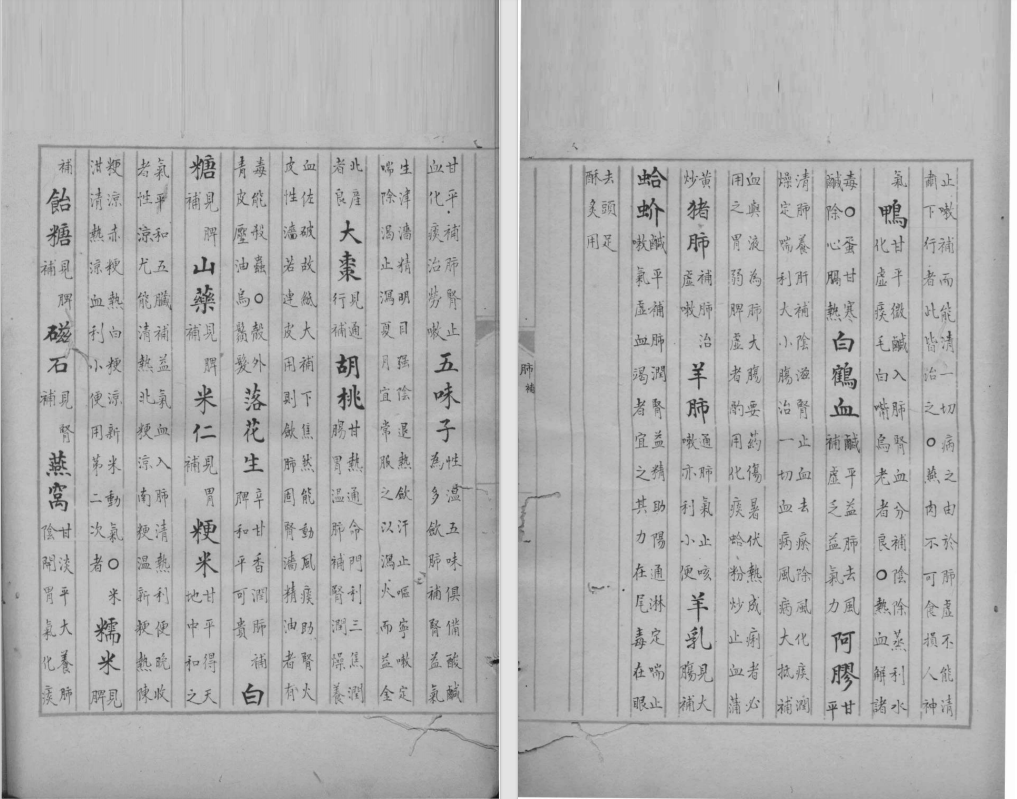 甘平補肺腎止血化痰治勞嗽 五味子 性溫五味俱備酸鹹為多斂肺補腎益氣
生津濇精明目强陰退熱斂汗止嘔寧嗽定喘除渴止瀉夏月宜常服之以瀉火而益金
北產者良 大棗 見通行補 胡桃 甘熱通命門利三焦潤腸胃溫肺補腎潤燥養
血佐破故紙大補下焦然能動風痰助腎火皮性濇若連皮用則斂肺固腎濇精油者有
毒能殺蟲○殼外青皮壓油烏鬚髮 落花生 辛甘香潤肺補脾和平可貴 白
糖 見脾補 山藥 見脾補 米仁 見胃補 粳米 甘平得天地中和之
氣平和五臟補益氣血入肺清熱利便晚收老性涼尤能清熱北粳涼南粳溫新粳熱陳
粳涼赤粳熱白粳涼新米動氣○米泔清熱涼血利小便用第二次者 糯米 見脾
補 飴糖 見脾補 磁石 見腎補 燕窩 甘淡平大養肺陰開胃氣化痰
止嗽補而能清一切病之由於肺虛不能清肅下行者此皆治之○燕肉不可食損人神
氣 鴨 甘平微鹹入肺腎血分補陰除蒸利水化虛痰毛白嘴烏老者良○熱血解諸
毒○蛋甘寒鹹除心膈熱 白鶴血 鹹平益肺去風補虛乏益氣力 阿膠 甘平
清肺養肝補陰滋腎止血去瘀除風化痰潤燥定喘利大小腸治一切血病風病大抵補
血與液為肺大腸要藥傷暑伏熱成痢者必用之胃弱脾虛者酌用化痰蛤粉炒止血蒲
黃炒 猪肺 補肺治虛嗽 羊肺 通肺氣止咳嗽亦利小便 羊乳 見大腸補
蛤蚧 鹹平補肺潤腎益精助陽通淋定喘止嗽氣虛血渴者宜之其力在尾毒在眼
去頭足酥炙用
肺補